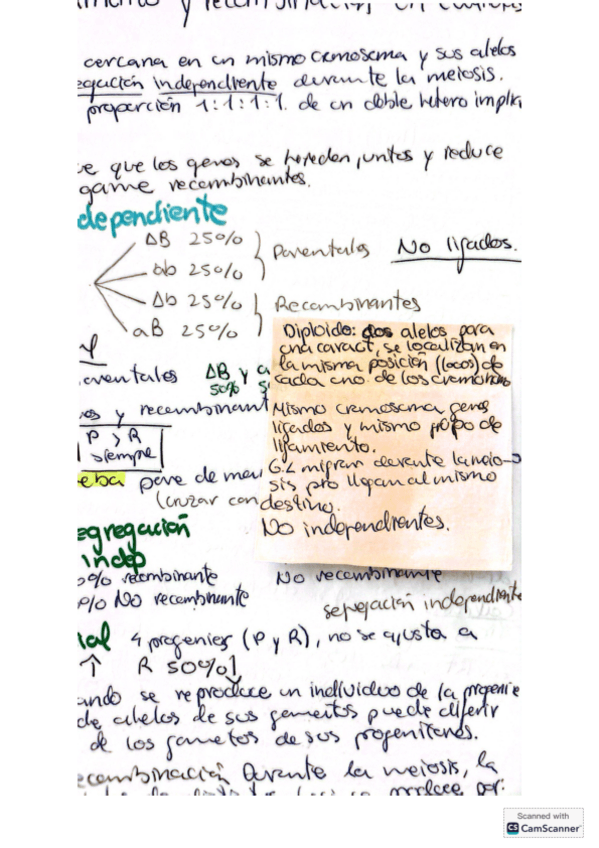 y recombinación, en
cercana en un mismo cromosoma y sus alelos
egación independiente durante la meiosis.
proporción 1:1:1:1. de un doble hetero implic
ve que los genes se hereden juntos y reduce
game recombinantes.
dependiente
AB 25%
ab 25%
Parentales
No ligados.
Ab 25%
aB 25%
Recombinantes
Diploide: dos alelos para
una caract, se localizan en
la misma posición (locus) de
cada uno de los cromosomas
Mismo cromosoma genes
ligados y mismo grupo de
ligamiento.
G.L migran durante la meio-
sis pro llegan al mismo
destino.
No independientes.
arentales AB y a
50% 5
es y recombinant
P > R
siempre
eba para de
(cruzar con
egregación
indep
0% recombinante
No recombinante
0/0 No recombinante
segregación independiente
ial 4 progenies (P y R), no se ajusta a
↑ R 50%]
ando se reproduce un individuo de la progenie
de alelos de sus gametos puede diferir
de los gametos de sus progenitores.
ecombinación Durante la meiosis, la
produce por:
Scanned with
CS CamScanner